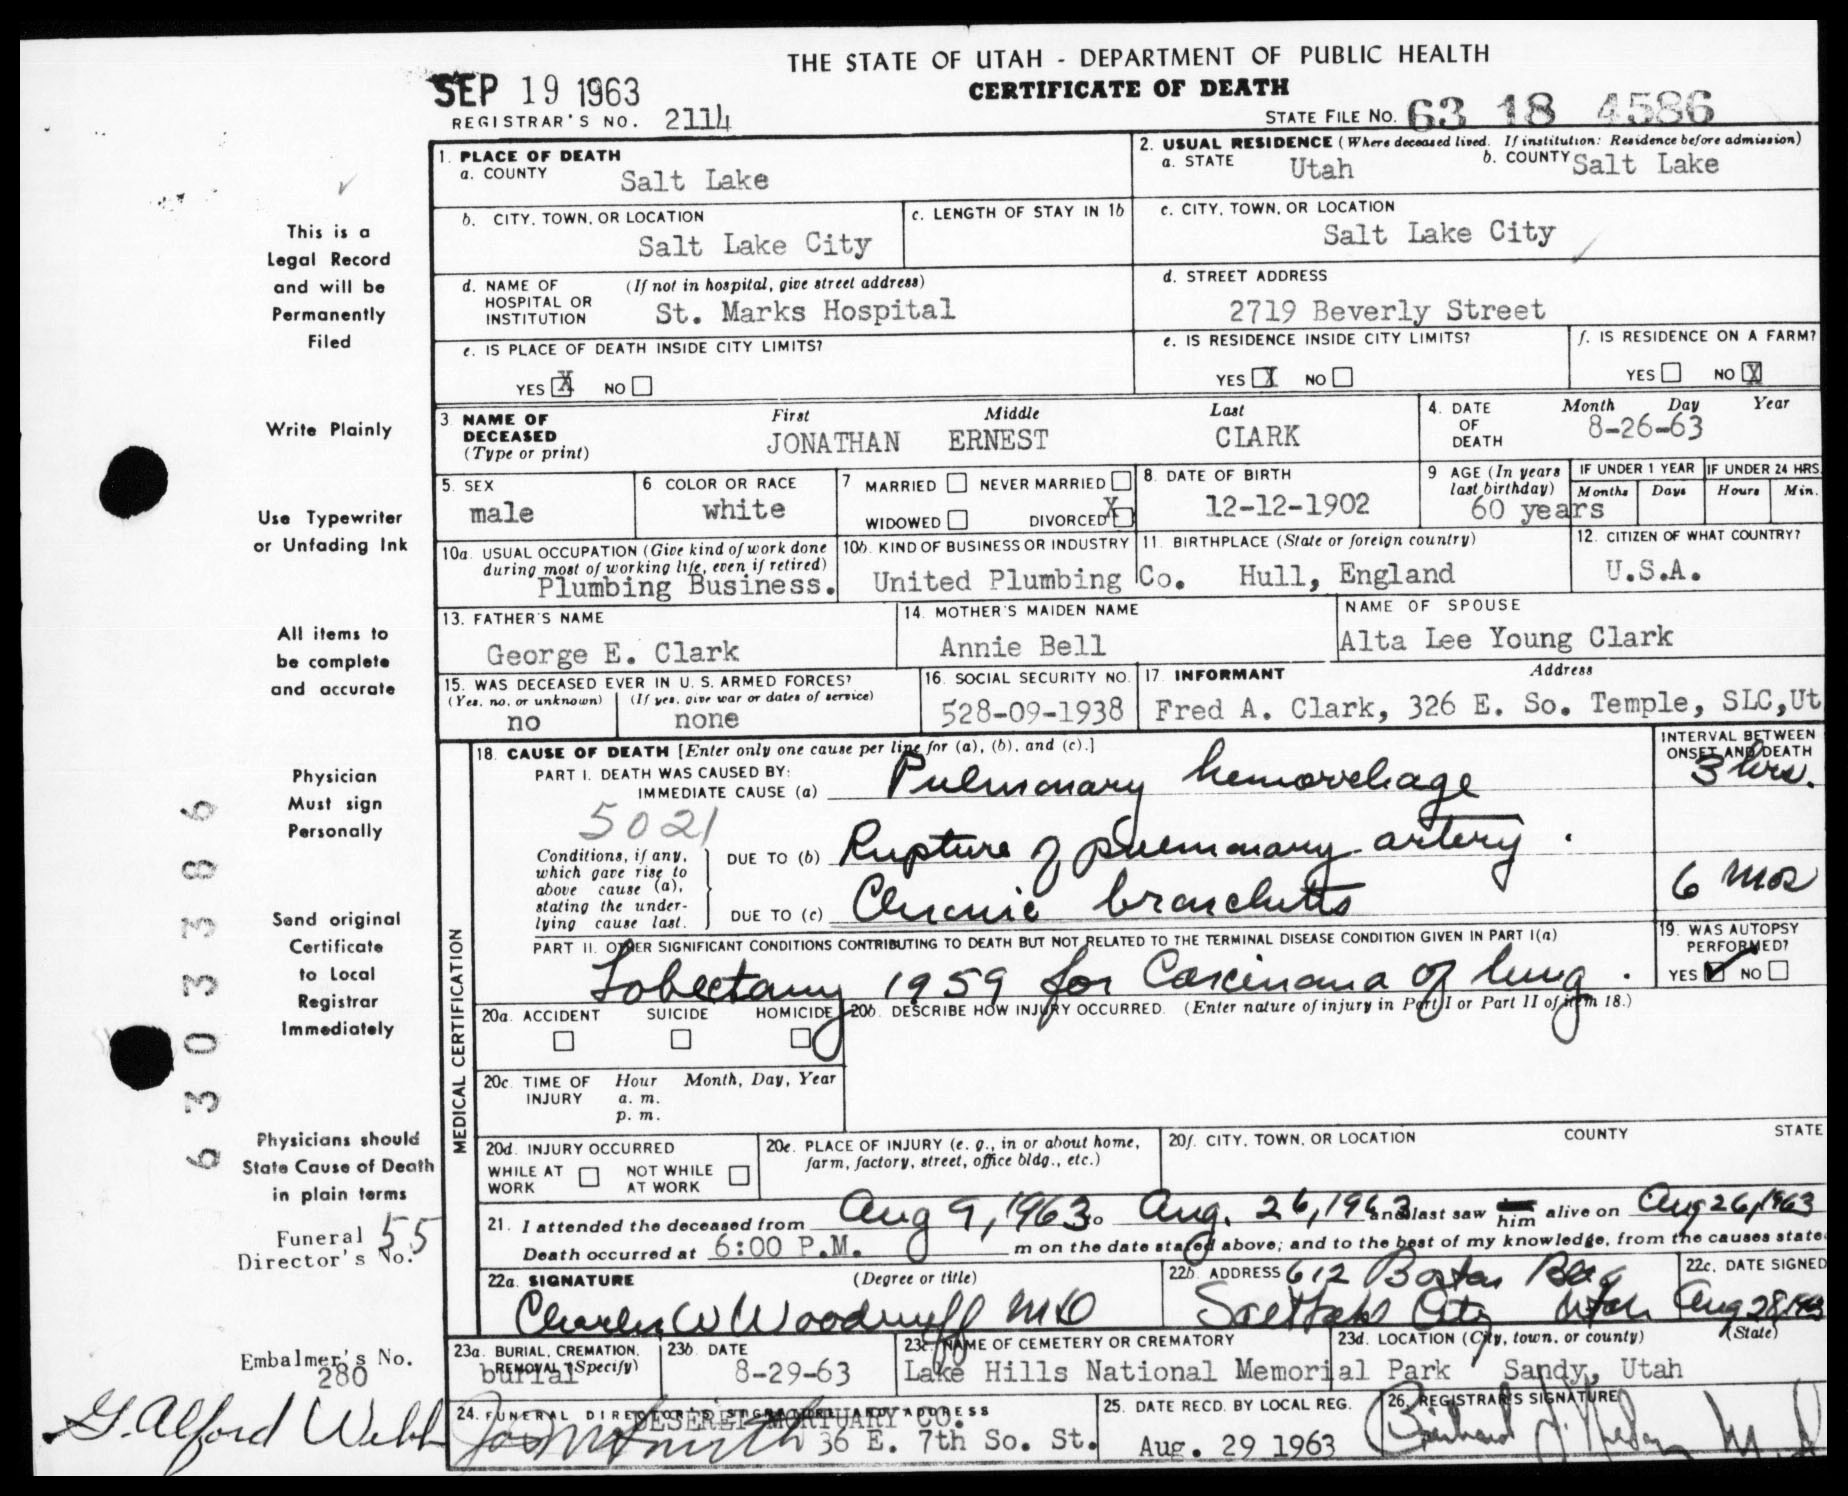 THE STATE OF UTAH - DEPARTMENT OF PUBLIC HEALTH
CERTIFICATE OF DEATH
SEP 19 1963
REGISTRAR'S NO. 2114
STATE FILE NO. 63 18 4586
1. PLACE OF DEATH
a. COUNTY Salt Lake
2. USUAL RESIDENCE (Where deceased lived. If institution: Residence before admission)
a. STATE Utah b. COUNTY Salt Lake
b. CITY, TOWN, OR LOCATION Salt Lake City
c. LENGTH OF STAY IN 1b
c. CITY, TOWN, OR LOCATION
Salt Lake City
d. NAME OF HOSPITAL OR INSTITUTION (If not in hospital, give street address)
St. Marks Hospital
d. STREET ADDRESS
2719 Beverly Street
e. IS PLACE OF DEATH INSIDE CITY LIMITS?
YES X NO
e. IS RESIDENCE INSIDE CITY LIMITS?
YES X NO
f. IS RESIDENCE ON A FARM?
YES NO X
3 NAME OF DECEASED (Type or print)
First Middle Last
JONATHAN ERNEST CLARK
4. DATE OF DEATH
Month Day Year
8-26-63
5. SEX
male
6 COLOR OR RACE
white
7 MARRIED NEVER MARRIED
WIDOWED DIVORCED X
8. DATE OF BIRTH
12-12-1902
9 AGE (In years last birthday)
60 years
IF UNDER 1 YEAR IF UNDER 24 HRS.
Months Days Hours Min.
10a. USUAL OCCUPATION (Give kind of work done during most of working life, even if retired)
Plumbing Business.
10b. KIND OF BUSINESS OR INDUSTRY
United Plumbing Co.
11. BIRTHPLACE (State or foreign country)
Hull, England
12. CITIZEN OF WHAT COUNTRY?
U.S.A.
13. FATHER'S NAME
George E. Clark
14. MOTHER'S MAIDEN NAME
Annie Bell
NAME OF SPOUSE
Alta Lee Young Clark
15. WAS DECEASED EVER IN U. S. ARMED FORCES?
(Yes, no, or unknown) (If yes, give war or dates of service)
no none
16. SOCIAL SECURITY NO.
528-09-1938
17. INFORMANT Address
Fred A. Clark, 326 E. So. Temple, SLC,Ut
MEDICAL CERTIFICATION
18. CAUSE OF DEATH [Enter only one cause per line for (a), (b), and (c).]
INTERVAL BETWEEN ONSET AND DEATH
PART I. DEATH WAS CAUSED BY:
IMMEDIATE CAUSE (a) Pulmonary hemorrhage 3 hrs.
5021
Conditions, if any, which gave rise to above cause (a), stating the underlying cause last.
DUE TO (b) Rupture of pulmonary artery.
DUE TO (c) Chronic bronchitis 6 mos
PART II. OTHER SIGNIFICANT CONDITIONS CONTRIBUTING TO DEATH BUT NOT RELATED TO THE TERMINAL DISEASE CONDITION GIVEN IN PART I(a)
Lobectomy 1959 for Carcinoma of lung.
19. WAS AUTOPSY PERFORMED?
YES NO
20a. ACCIDENT SUICIDE HOMICIDE
20b. DESCRIBE HOW INJURY OCCURRED. (Enter nature of injury in Part I or Part II of item 18.)
20c. TIME OF INJURY Hour Month, Day, Year
a. m.
p. m.
20d. INJURY OCCURRED
WHILE AT WORK NOT WHILE AT WORK
20e. PLACE OF INJURY (e. g., in or about home, farm, factory, street, office bldg., etc.)
20f. CITY, TOWN, OR LOCATION COUNTY STATE
21. I attended the deceased from Aug 9, 1963 to Aug. 26, 1963 and last saw him alive on Aug 26, 1963
Death occurred at 6:00 P.M. m on the date stated above; and to the best of my knowledge, from the causes state
22a. SIGNATURE (Degree or title)
Charles W Woodruff MD
22b. ADDRESS 612 Boston Bldg
Salt Lake City Utah
22c. DATE SIGNED
Aug 28, 1963
23a. BURIAL, CREMATION, REMOVAL (Specify)
burial
23b. DATE
8-29-63
23c. NAME OF CEMETERY OR CREMATORY
Lake Hills National Memorial Park
23d. LOCATION (City, town, or county) (State)
Sandy, Utah
24. FUNERAL DIRECTOR'S SIGNATURE AND ADDRESS
DESERET MORTUARY CO.
36 E. 7th So. St.
25. DATE RECD. BY LOCAL REG.
Aug. 29 1963
26. REGISTRAR'S SIGNATURE
This is a
Legal Record
and will be
Permanently
Filed
Write Plainly
Use Typewriter
or Unfading Ink
All items to
be complete
and accurate
Physician
Must sign
Personally
Send original
Certificate
to Local
Registrar
Immediately
Physicians should
State Cause of Death
in plain terms
Funeral
Director's No. 55
Embalmer's No.
280
G. Alford Webb
6303386